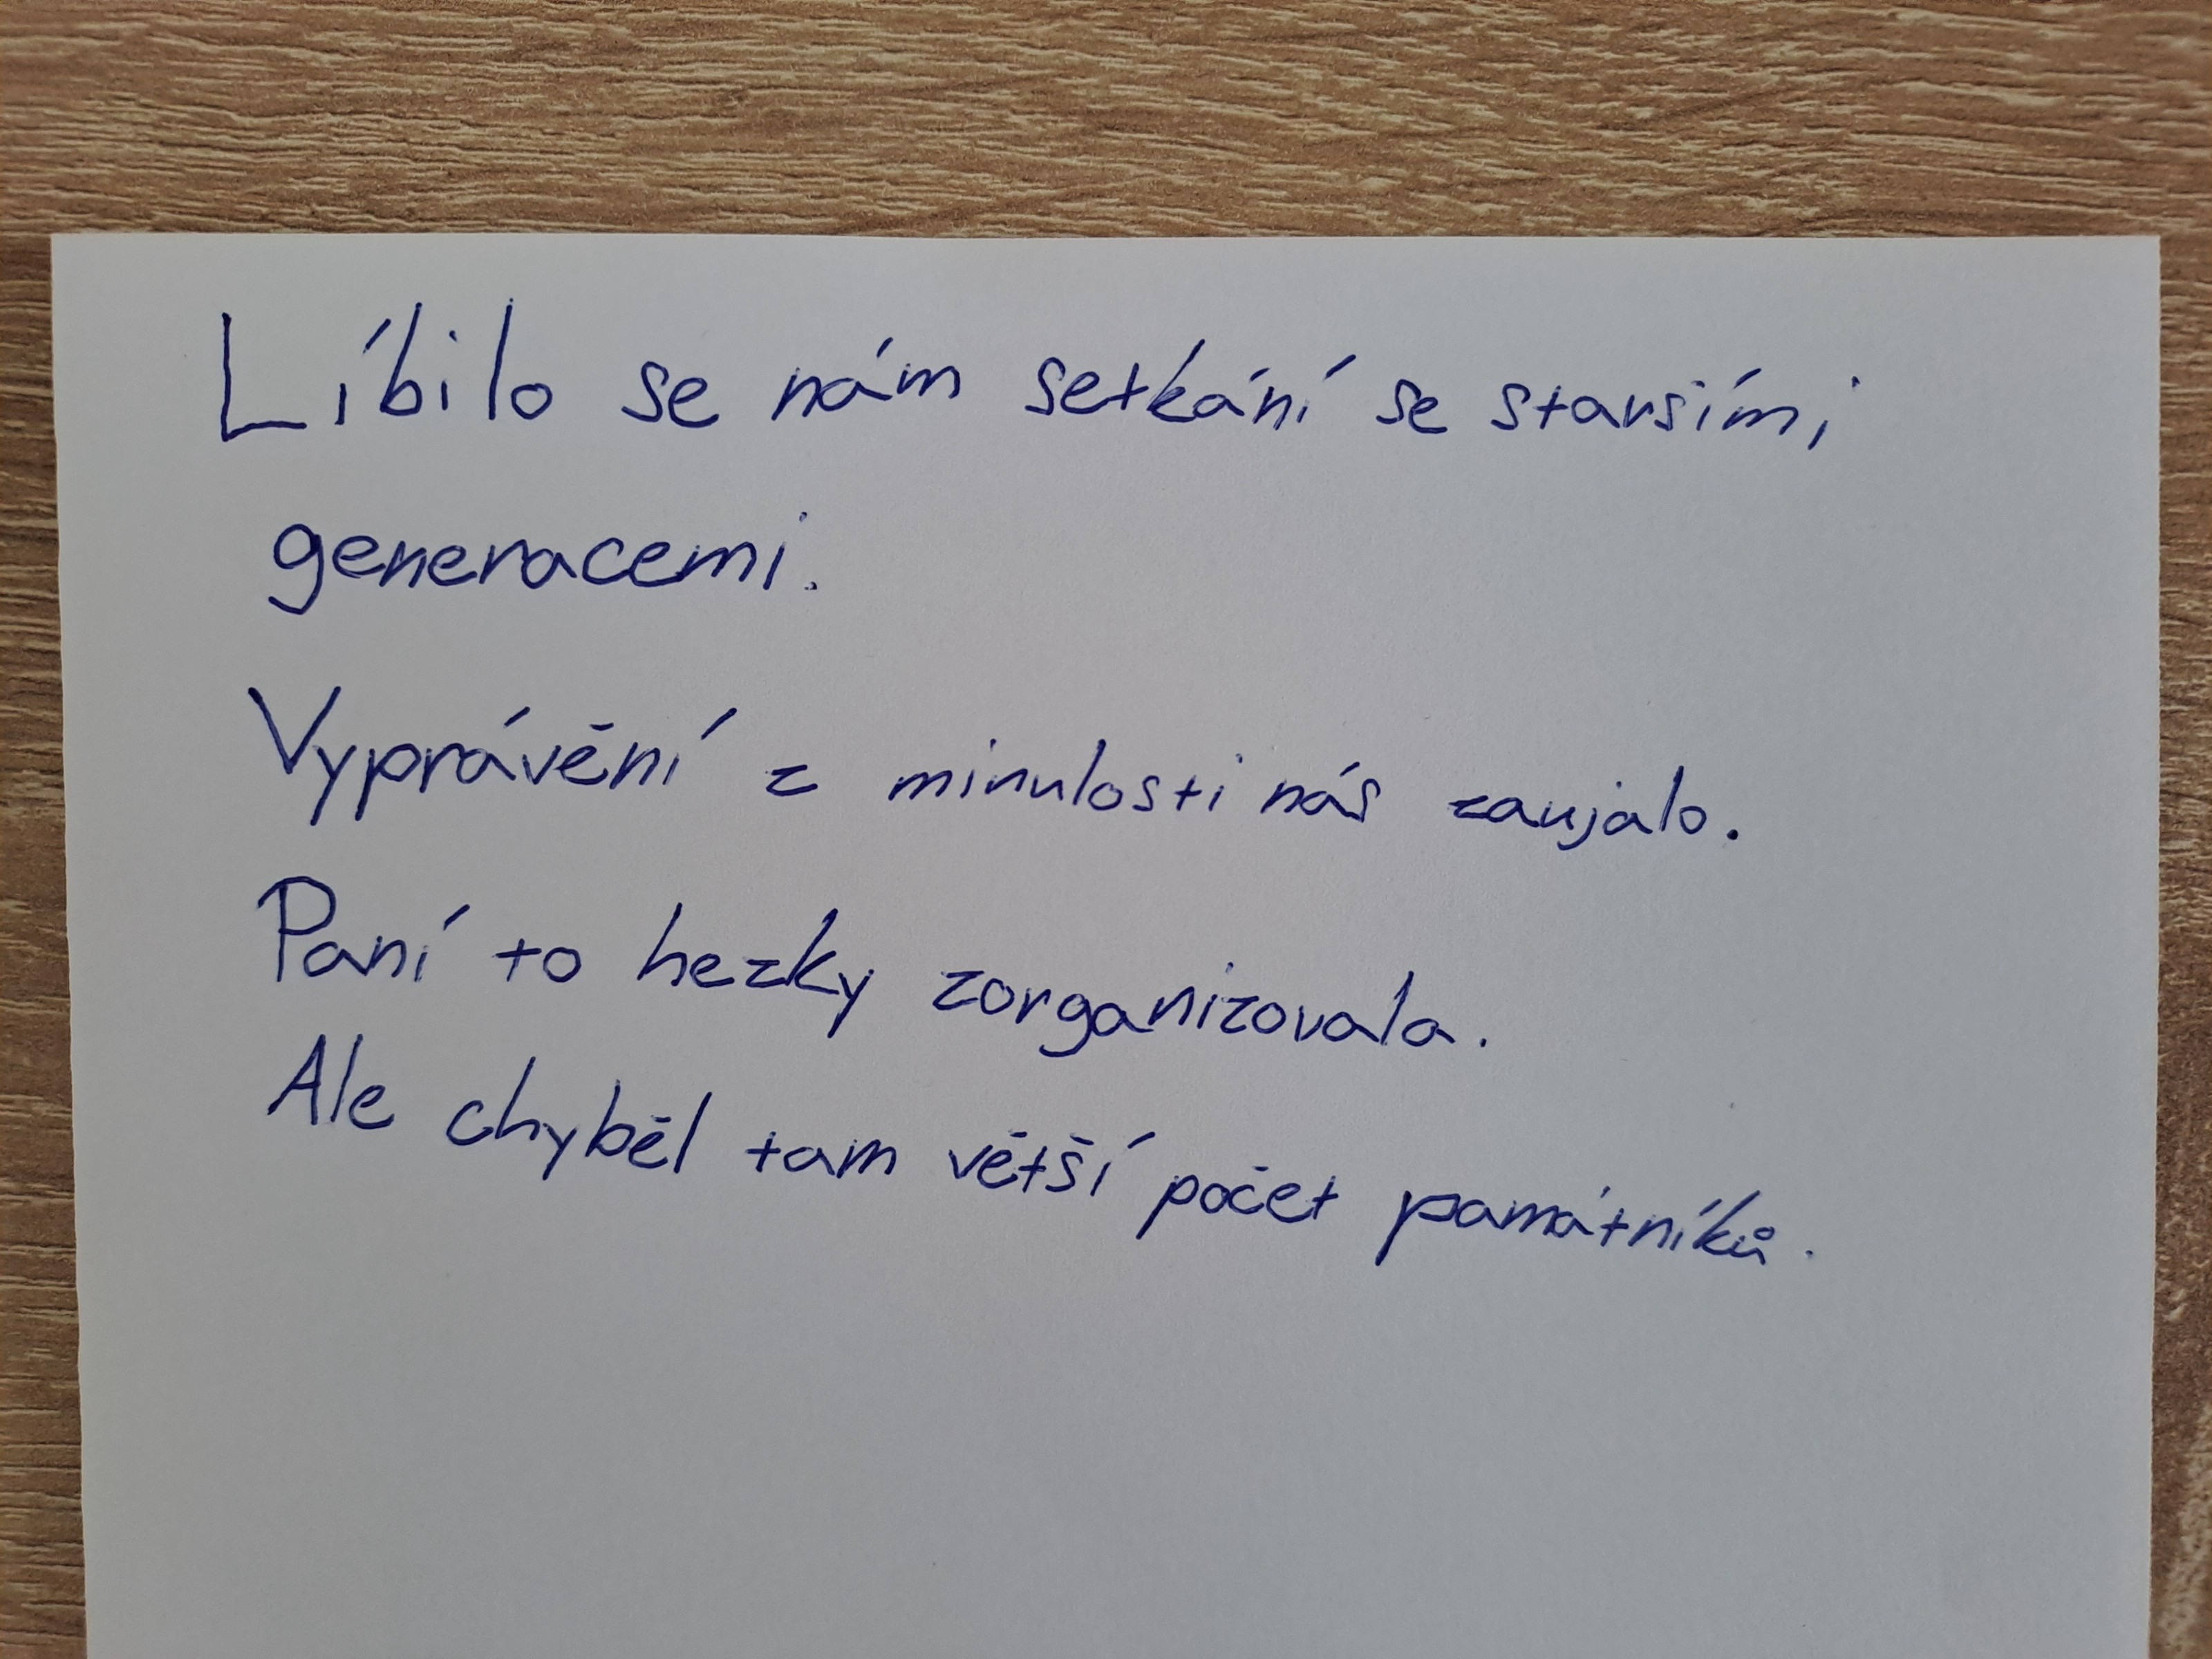 Líbilo se nám setkání se staršími
generacemi.
Vyprávění z minulosti nás zaujalo.
Paní to hezky zorganizovala.
Ale chyběl tam větší počet pamatníků.